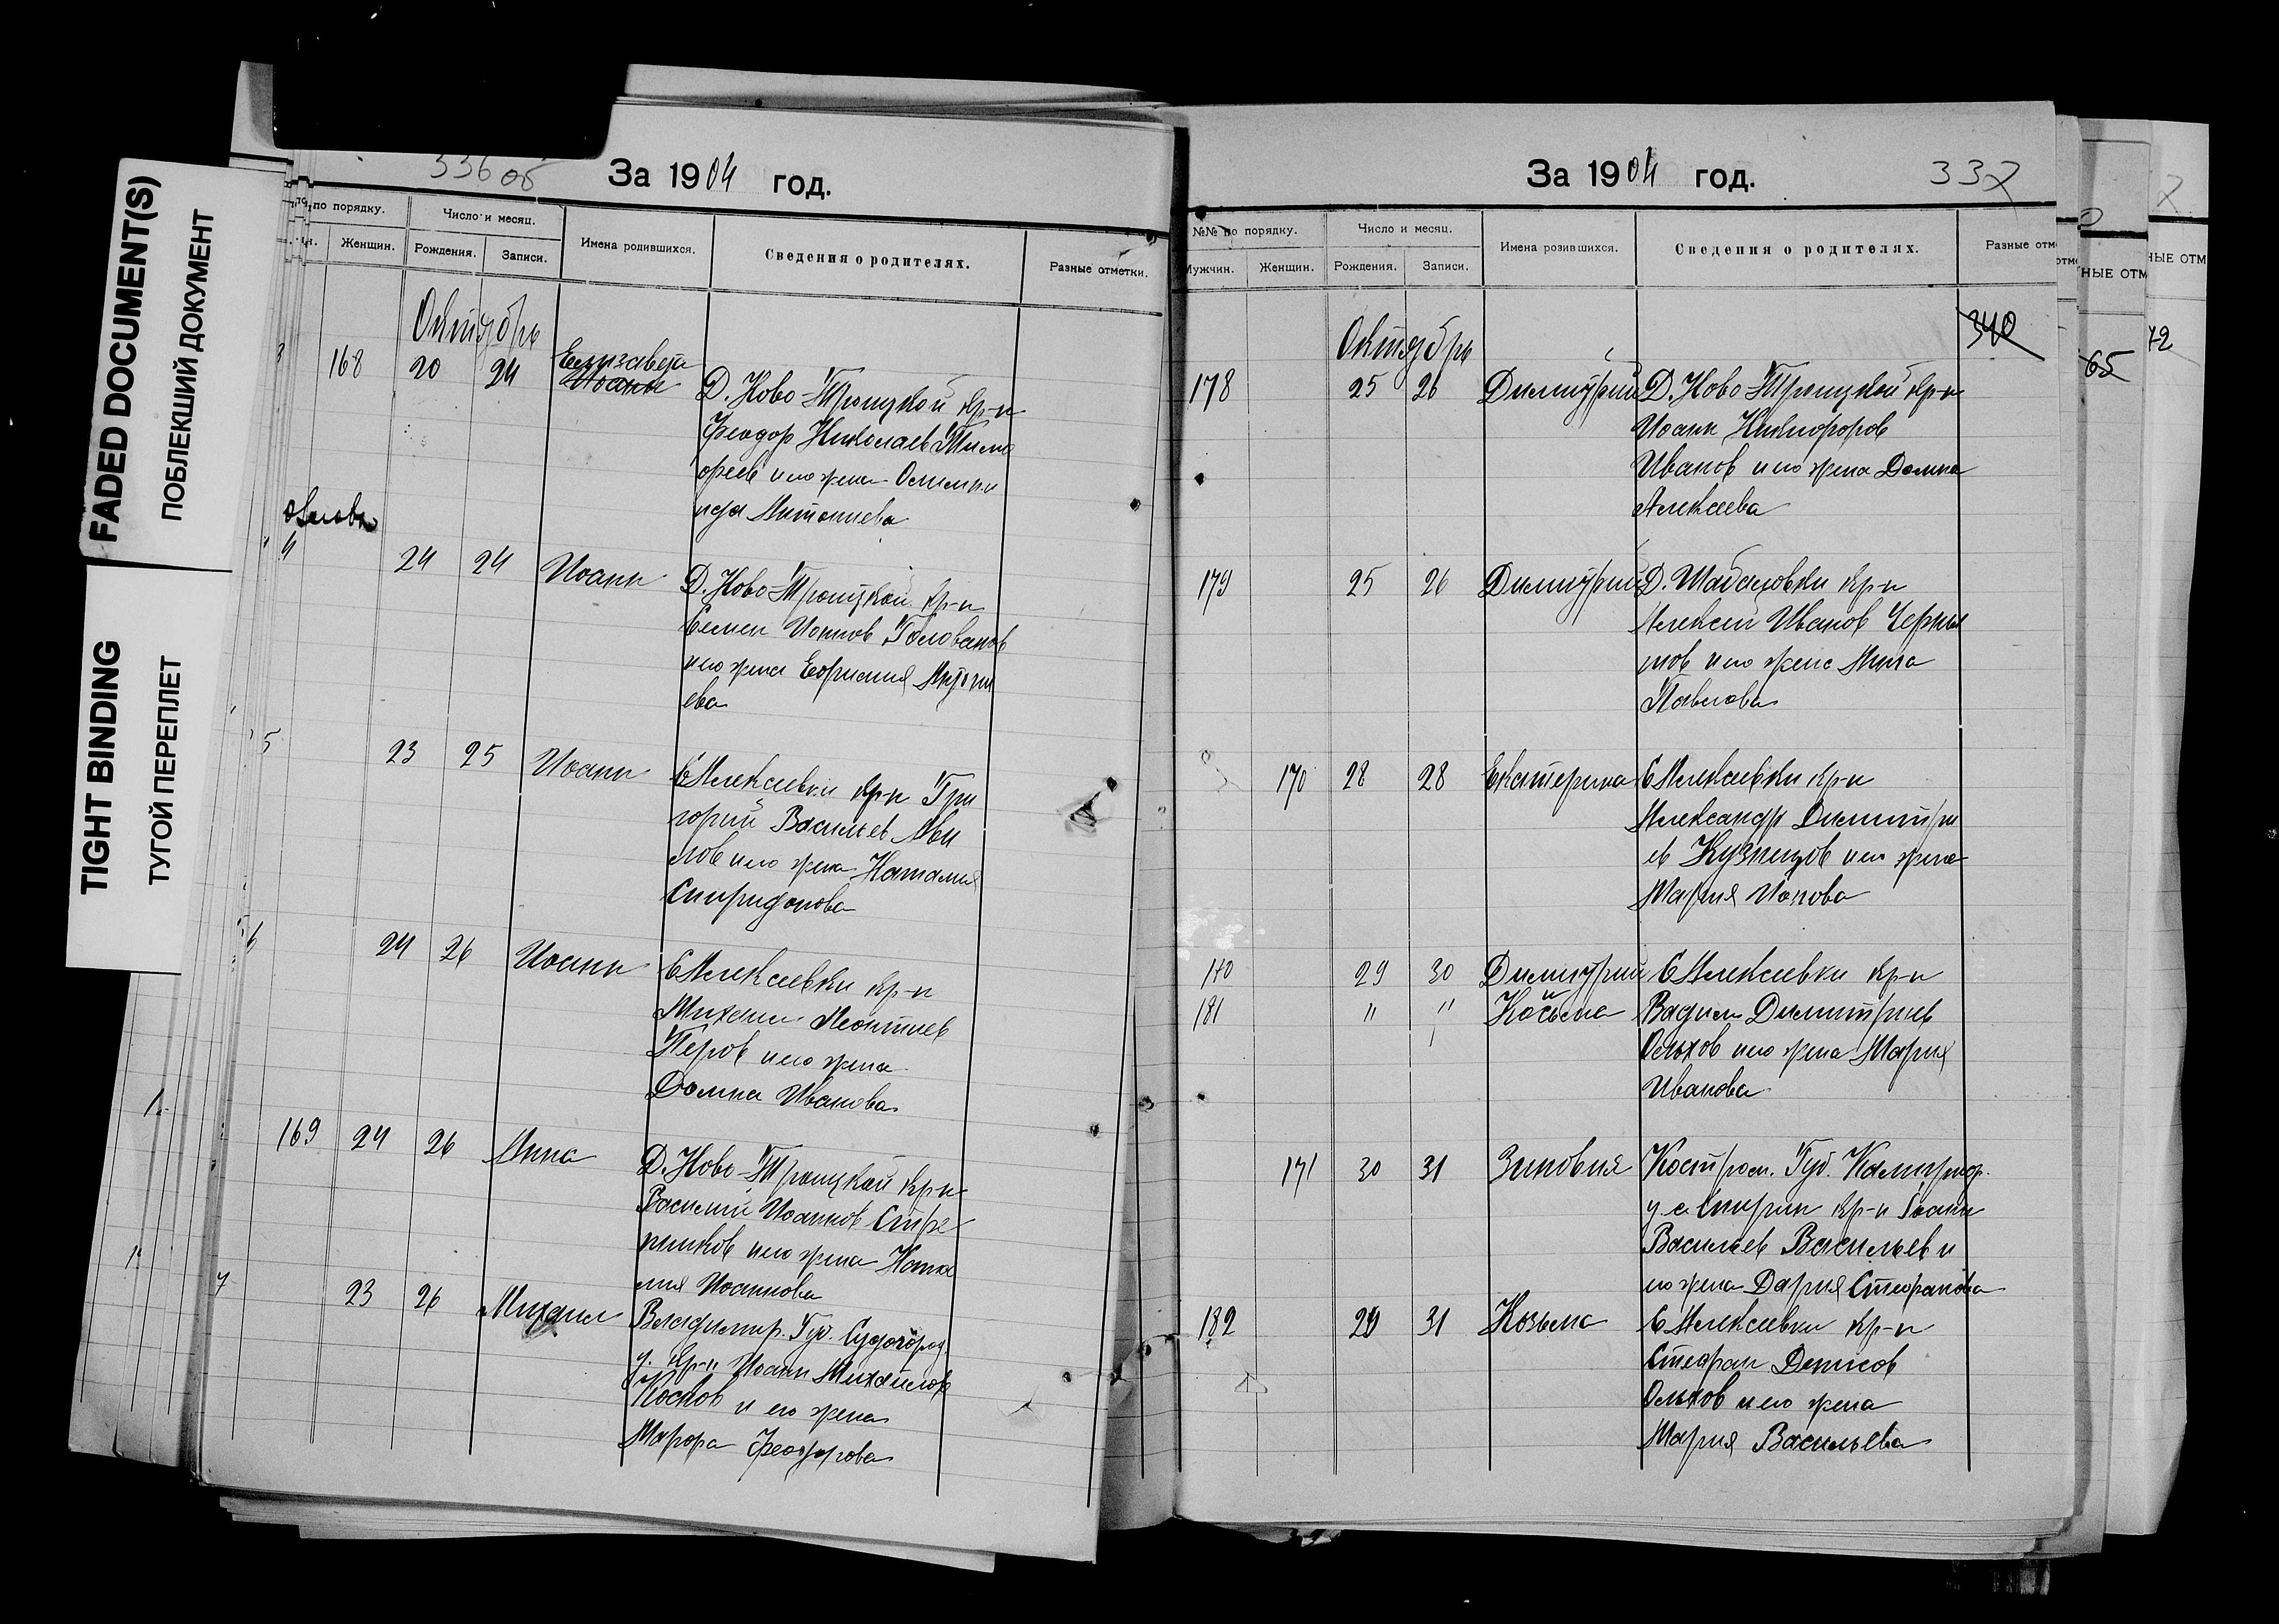 FADED DOCUMENT(S)
ПОБЛЕКШИЙ ДОКУМЕНТ
TIGHT BINDING
ТУГОЙ ПЕРЕПЛЕТ
336об
За 1904 год.
по порядку.
Число и месяц.
Имена родившихся.
Сведения о родителях.
Разные отметки.
Женщин.
Рождения.
Записи.
Октябрь
168 20 24 Елизавета
Иоанн
Д. Ново-Троицкой кр-н
Феодор Николаев Тимо
феев и его жена Олимпи
ада Антониева
4 24 24 Иоанн
Д. Ново-Троицкой кр-н
Семен Иоанов Голованов
и его жена Евфимия
ева
5 23 25 Иоанн
С Алексеевки кр-н Гри
горий Васильев Ави
лов и его жена Наталия
Спиридонова
6 24 26 Иоанн
С Алексеевки кр-н
Михаил Леонтиев
Перов и его жена
Домна Иванова
169 24 26 Анна
Д. Ново-Троицкой кр-н
Василий Иоаннов
и его жена Ната
лия Иоаннова
7 23 26 Михаил
Владимир. Губ. Судогород.
у. кр-н Иоанн Михаилов
и его жена
Марфа Феодорова
За 1904 год.
337
№№ по порядку.
Число и месяц.
Имена розившихся.
Сведения о родителях.
Разные отм
Мужчин.
Женщин.
Рождения.
Записи.
НЫЕ ОТМ
НЫЕ ОТМ
340
65
72
Октябрь
178 25 26 Димитрий
Д. Ново Троицкой кр-н
Иоанн Никифоров
Иванов и его жена Домна
Алексеева
179 25 26 Димитрий
Д. Шабаловки кр-н
Алексей Иванов Черны
шов и его жена Анна
Павлова
170 28 28 Екатерина
С Алексеевки кр-н
Александр Димитри
ев Кузнецов и его жена
Мария Иоанова
170 29 30 Димитрий
С Алексеевки кр-н
181 " " и Козьма
Вадим Димитриев
Ольхов и его жена Мария
Иванова
171 30 31 Зиновия
Костром. Губ.
у с. Спирин кр-н Иоанн
Васильев Васильев и
его жена Дария Стефанова
182 29 31 Козьма
С Алексеевки кр-н
Стефан Денисов
Ольхов и его жена
Мария Васильева